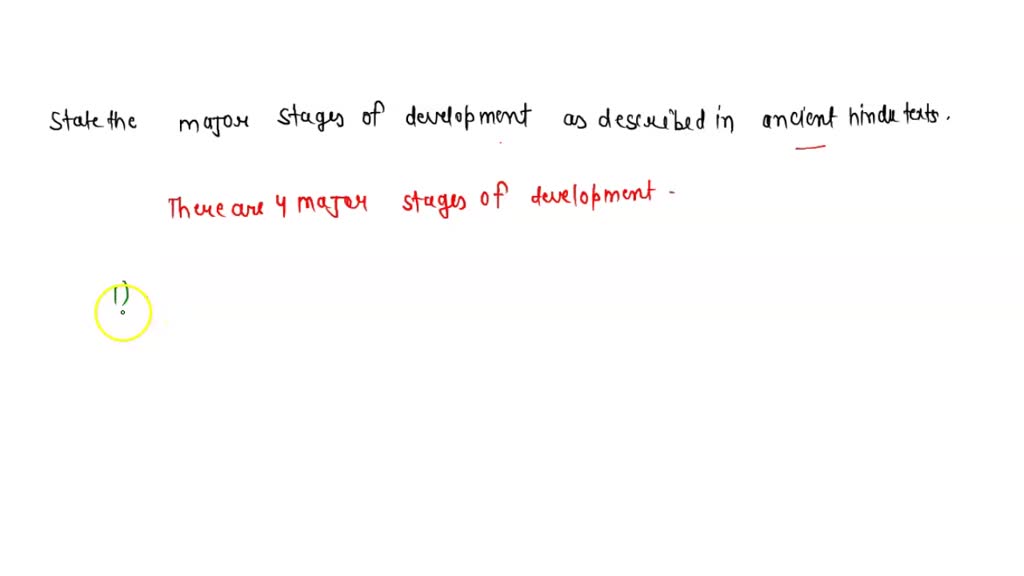 State the major stages of development as described in ancient hindu texts.
There are 4 major stages of development.
1)